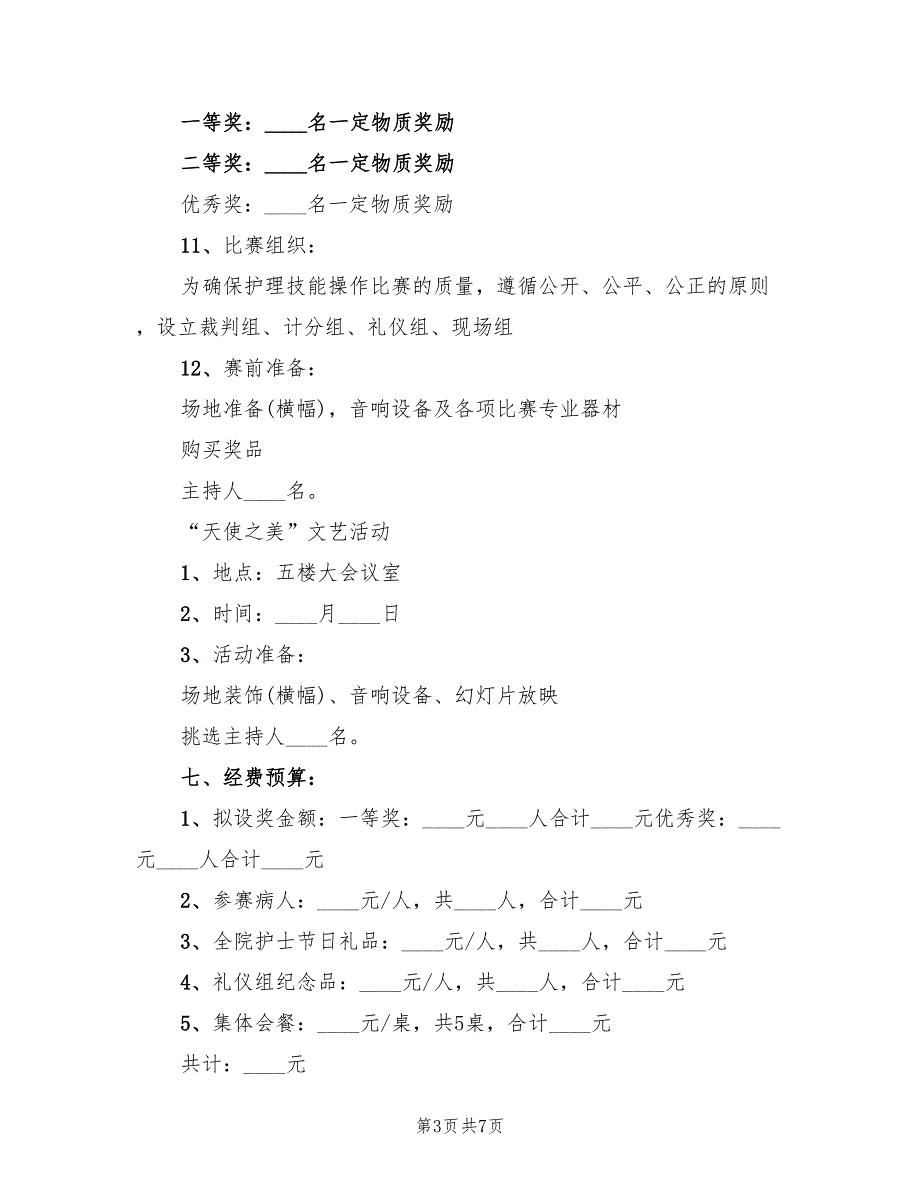 一等奖：____名一定物质奖励
二等奖：____名一定物质奖励
优秀奖：____名一定物质奖励
11、比赛组织：
为确保护理技能操作比赛的质量，遵循公开、公平、公正的原则
，设立裁判组、计分组、礼仪组、现场组
12、赛前准备：
场地准备(横幅)，音响设备及各项比赛专业器材
购买奖品
主持人____名。
“天使之美”文艺活动
1、地点：五楼大会议室
2、时间：____月____日
3、活动准备：
场地装饰(横幅)、音响设备、幻灯片放映
挑选主持人____名。
七、经费预算：
1、拟设奖金额：一等奖：____元____人合计____元优秀奖：____
元____人合计____元
2、参赛病人：____元/人，共____人，合计____元
3、全院护士节日礼品：____元/人，共____人，合计____元
4、礼仪组纪念品：____元/人，共____人，合计____元
5、集体会餐：____元/桌，共5桌，合计____元
共计：____元
第3页共7页